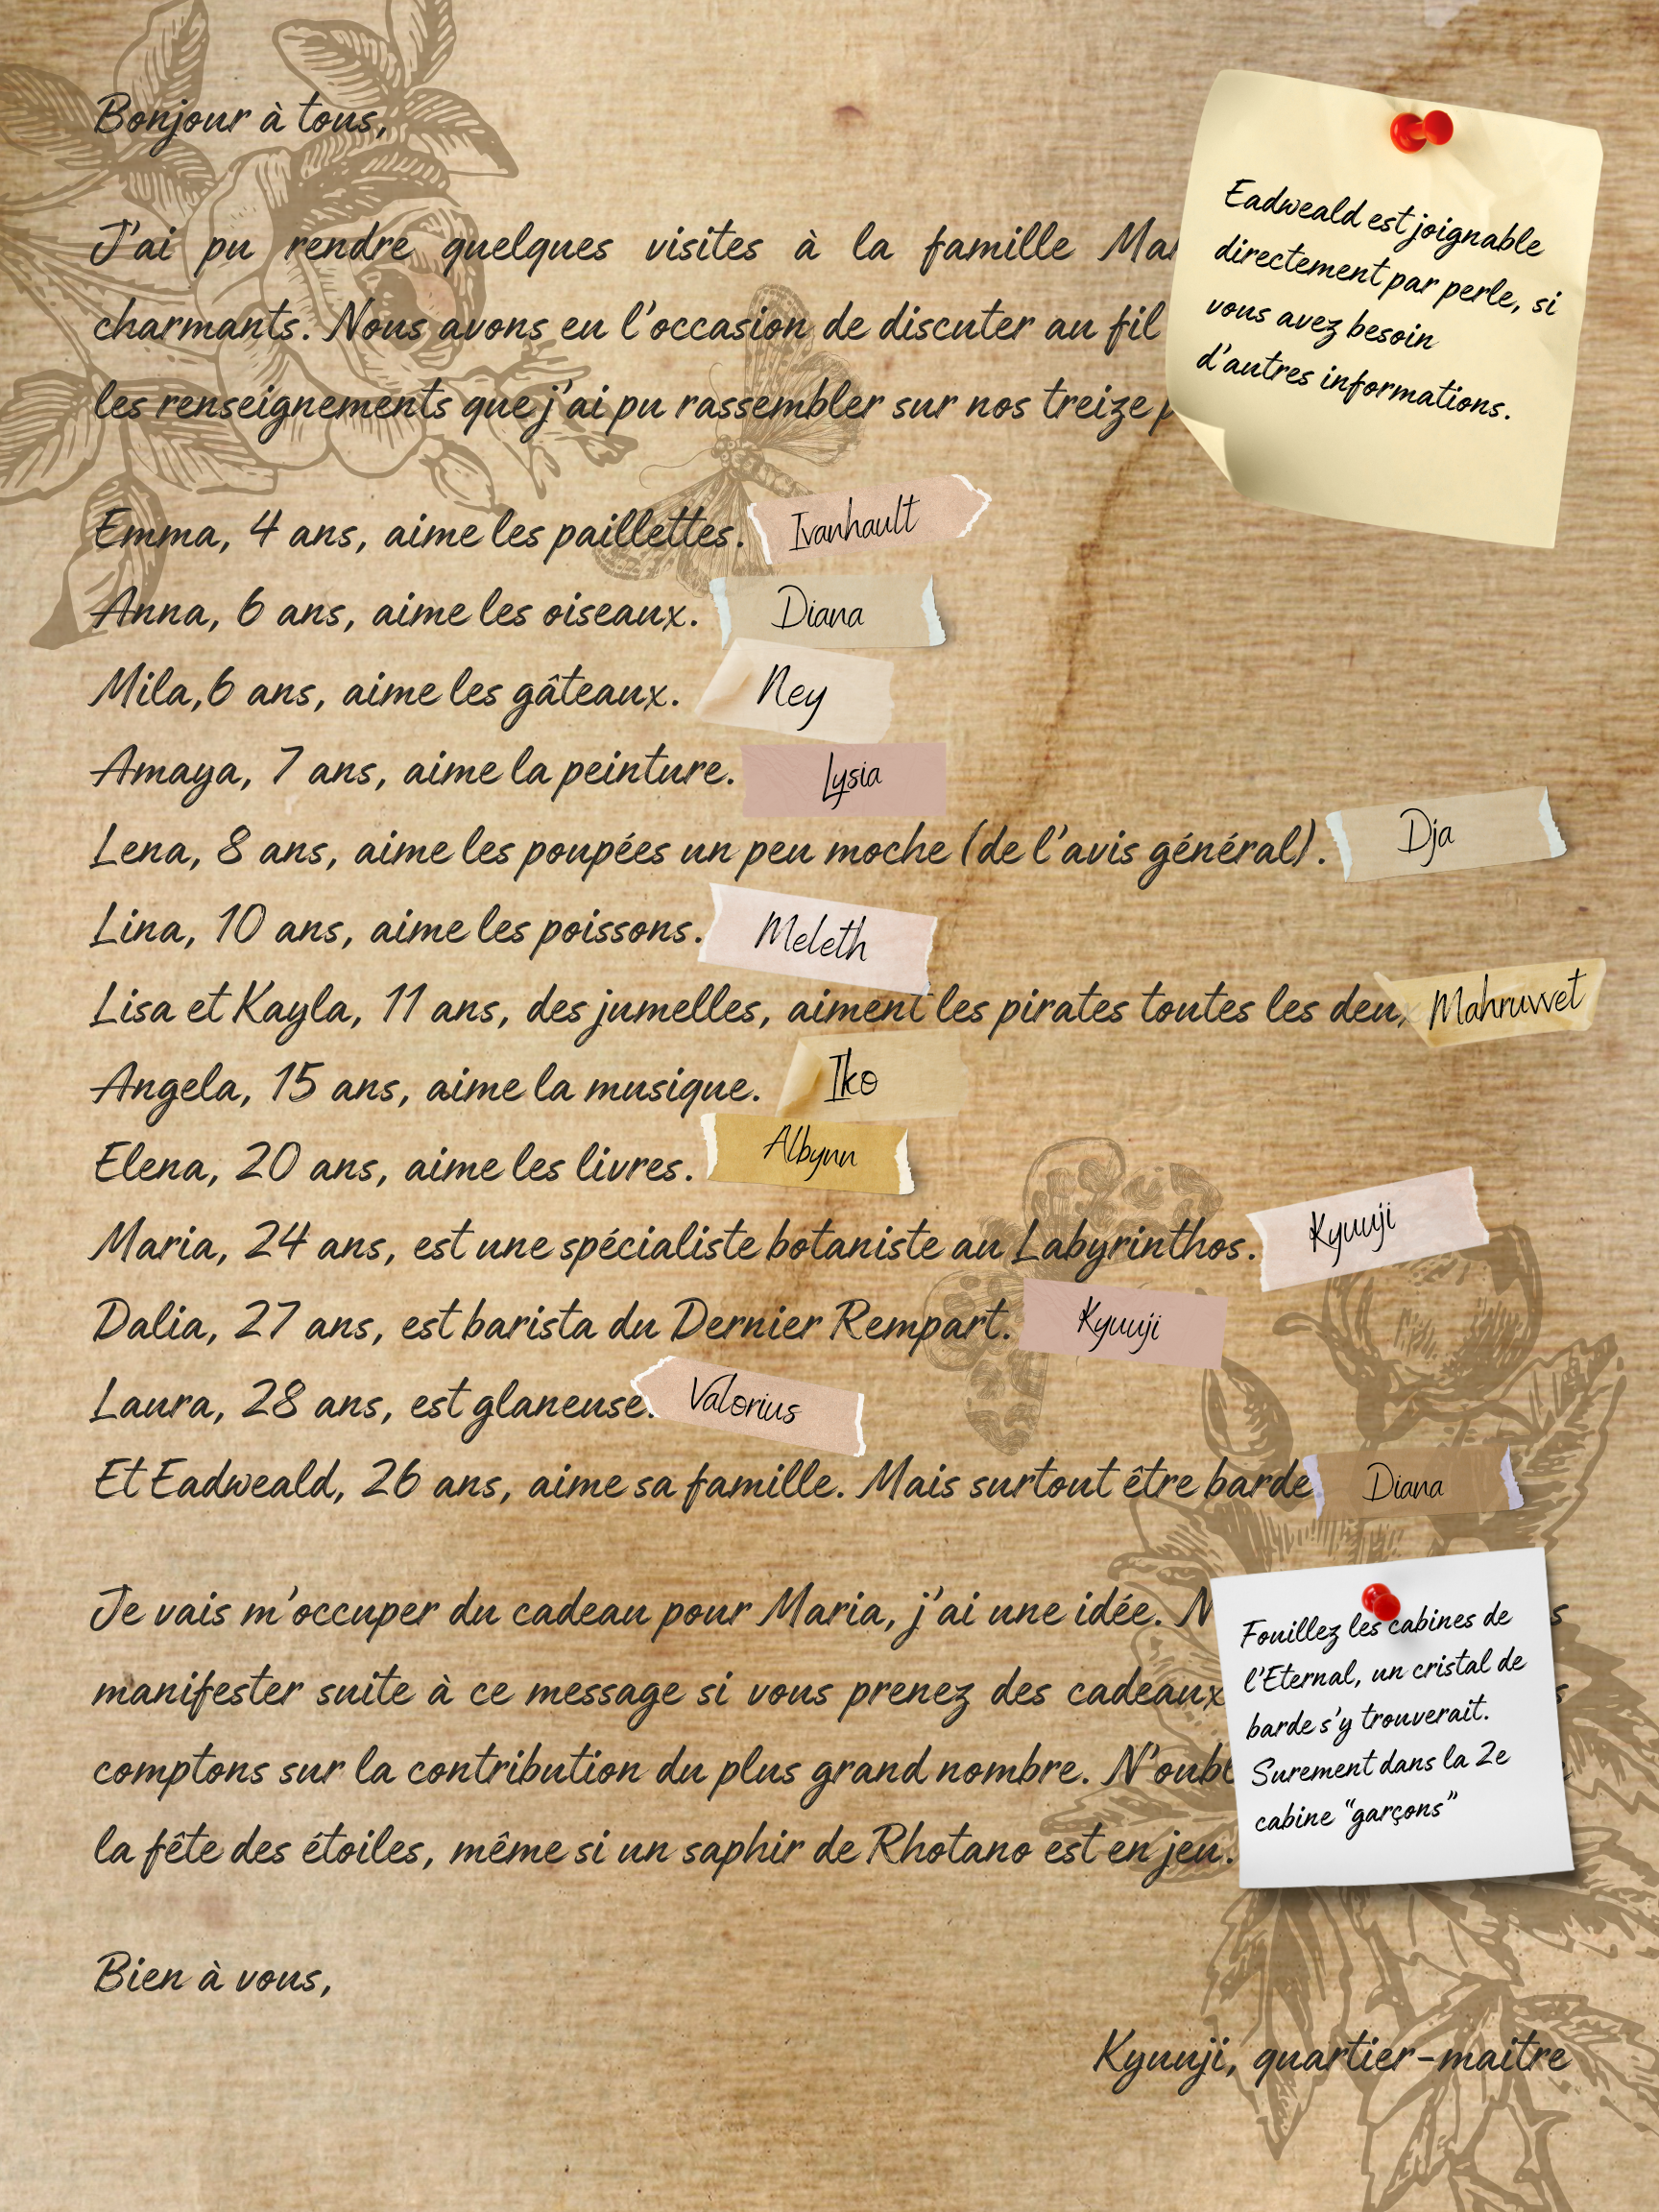 Bonjour à tous,
J'ai pu rendre quelques visites à la famille
charmants. Nous avons eu l'occasion de discuter au fil
les renseignements que j'ai pu rassembler sur nos treize
Eadweald est joignable
directement par perle, si
vous avez besoin
d'autres informations.
Emma, 4 ans, aime les paillettes. Ivanhault
Anna, 6 ans, aime les oiseaux. Diana
Mila,6 ans, aime les gâteaux. Ney
Amaya, 7 ans, aime la peinture. Lysia
Lena, 8 ans, aime les poupées un peu moche (de l'avis général). Dja
Lina, 10 ans, aime les poissons. Meleth
Lisa et Kayla, 11 ans, des jumelles, aiment les pirates toutes les deux Mahruvvet
Angela, 15 ans, aime la musique. Iko
Elena, 20 ans, aime les livres. Albynn
Maria, 24 ans, est une spécialiste botaniste au Labyrinthos. Kyuuji
Dalia, 27 ans, est barista du Dernier Rempart. Kyuuji
Laura, 28 ans, est glaneuse. Valorius
Et Eadweald, 26 ans, aime sa famille. Mais surtout être barde Diana
Je vais m'occuper du cadeau pour Maria, j'ai une idée.
manifester suite à ce message si vous prenez des cadeaux
comptons sur la contribution du plus grand nombre.
la fête des étoiles, même si un saphir de Rhotano est en jeu.
Fouillez les cabines de
l'Eternal, un cristal de
barde s'y trouverait.
Surement dans la 2e
cabine "garçons"
Bien à vous,
Kyuuji, quartier-maitre